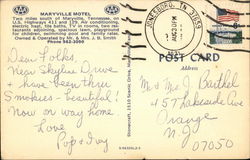 MARYVILLE MOTEL
Two miles south of Maryville, Tennessee, on
U.S. Highways 411 and 129. Air conditioning,
electric heat, tile baths, TV in rooms, two restaurants adjoining, spacious lawn, playground
for children, swimming pool and family rates.
Owned & Operated by Mr. & Mrs. J. B. Smith
Phone 982-3060
Dear Folks,
Near Skyline Drive
+ have been thru
Smokies - beautiful!
Now on way home
Love
Pop + Ivay
POST CARD
Address
Mr + Mrs J. Barthel
457 Lakeside Ave
Orange
N.J.
07050